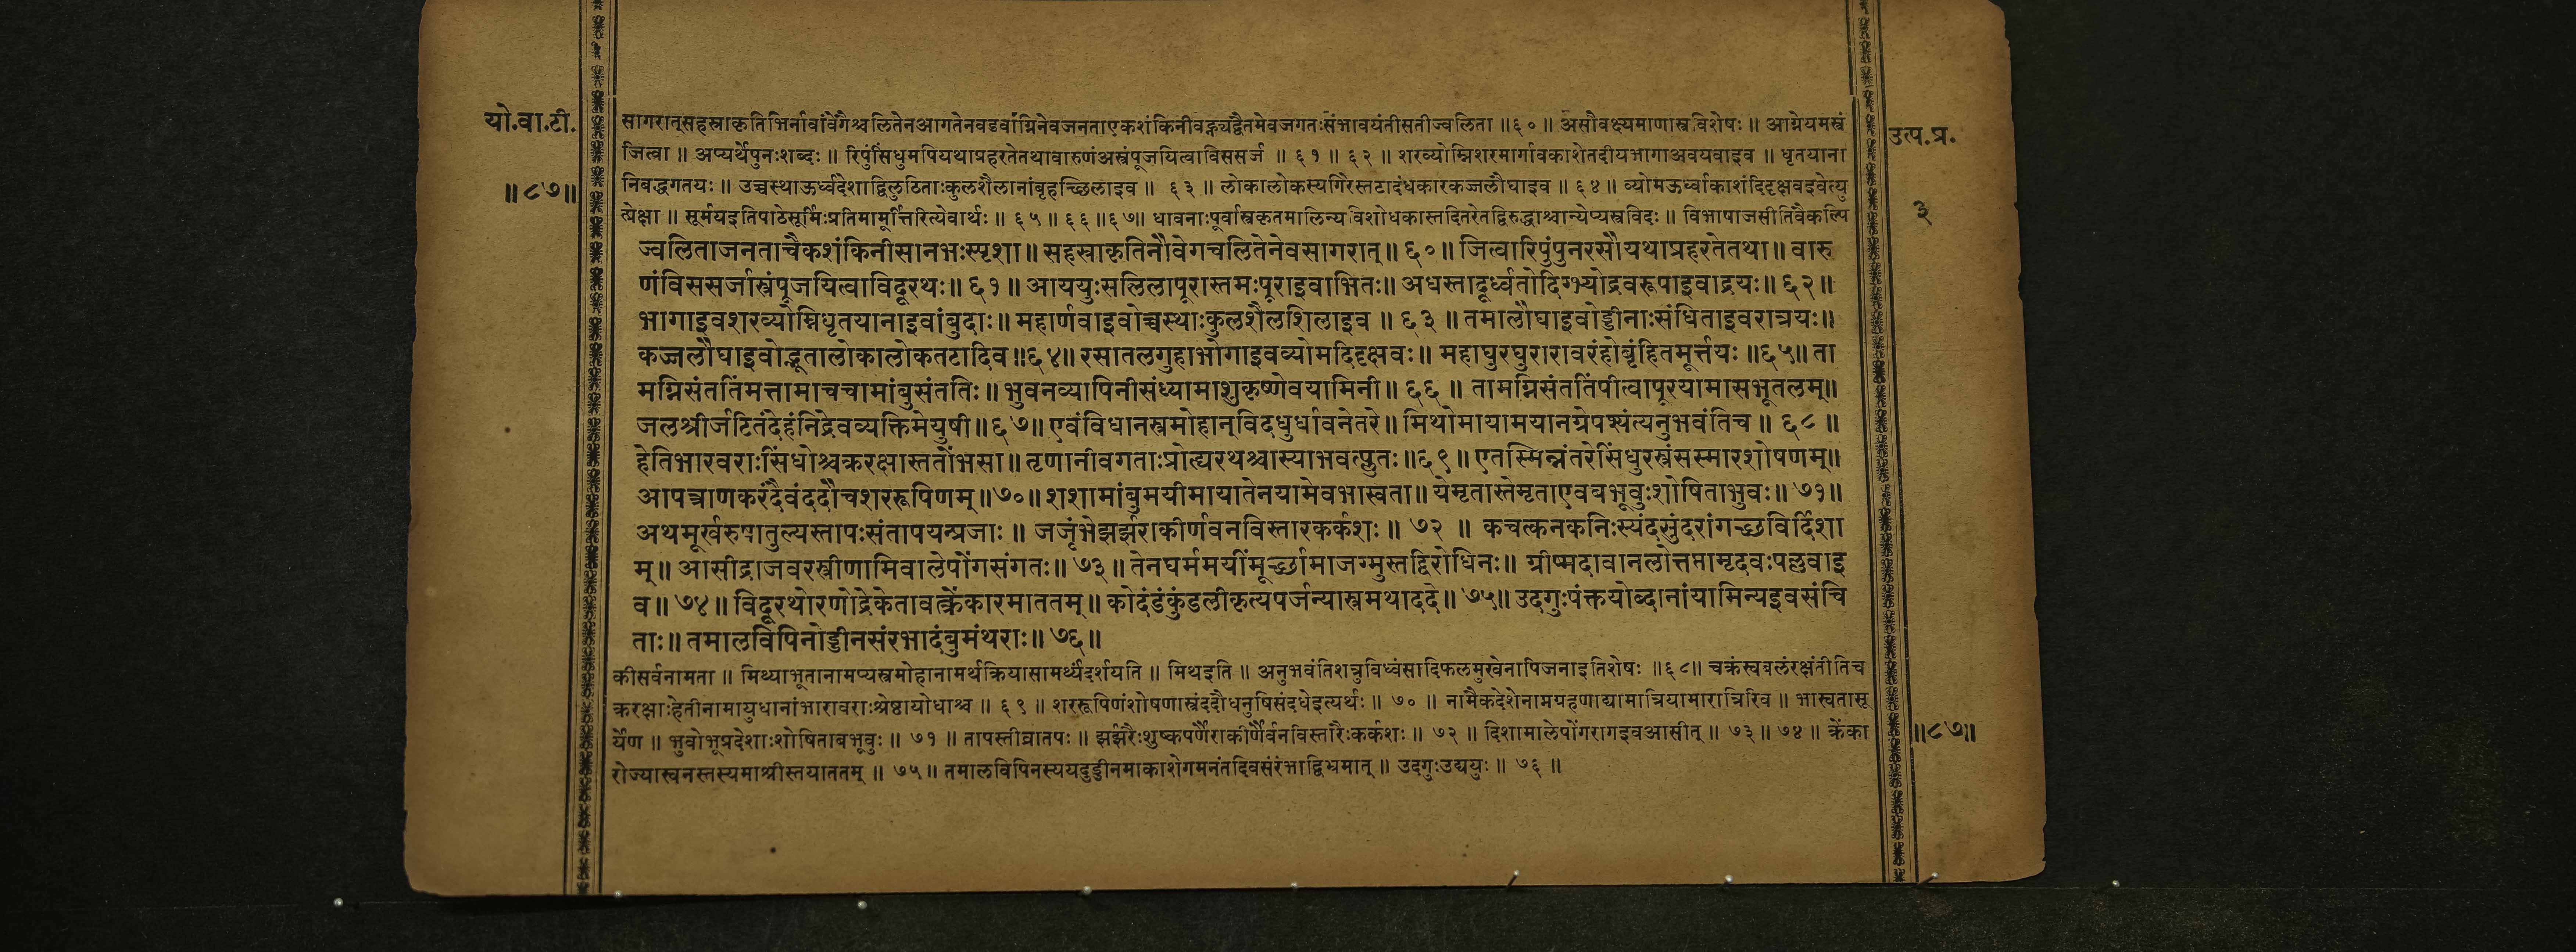 यो.वा.टी.
॥८७॥
सागरात्सहस्राकृतिभिर्नावांवेगैश्चलितेनआगतेनवडवाग्निनेवजनताएकशंकिनीवह्न्यद्वैतमेवजगतःसंभावयंतीसतीज्वलिता ॥६०॥ असौवक्ष्यमाणास्त्रविशेषः ॥ आग्नेयमस्त्रं
जित्वा ॥ अप्यर्थेपुनःशब्दः ॥ रिपुंसिंधुमपियथाप्रहरतेतथावारुणंअस्त्रंपूजयित्वाविससर्ज ॥ ६१ ॥ ६२ ॥ शरव्योम्निशरमार्गावकाशेतदीयभागाअवयवाइव ॥ धृतयाना
निबद्धगतयः ॥ उच्चस्थाऊर्ध्वदेशाद्विलुठिताःकुलशैलानांबृहच्छिलाइव ॥ ६३ ॥ लोकालोकस्यगिरेस्तटादंधकारकज्जलौघाइव ॥ ६४ ॥ व्योमऊर्ध्वाकाशंदिदृक्षवइवेत्यु
त्प्रेक्षा ॥ सूर्मयइतिपाठेसूर्मिःप्रतिमामूर्त्तिरित्येवार्थः ॥ ६५ ॥ ६६ ॥६७॥ धावनाःपूर्वास्त्रकृतमालिन्यविशोधकास्तदितरेतद्विरुद्धाश्चान्येप्यस्त्रविदः ॥ विभाषाजसीतिवैकल्पि
ज्वलिताजनताचैकशंकिनीसानभःस्पृशा ॥ सहस्राकृतिनौवेगचलितेनेवसागरात् ॥ ६० ॥ जित्वारिपुंपुनरसौयथाप्रहरतेतथा ॥ वारु
णंविससर्जास्त्रंपूजयित्वाविदूरथः ॥ ६१ ॥ आययुःसलिलापूरास्तमःपूराइवाभितः ॥ अधस्तादूर्ध्वतोदिग्भ्योद्रवरूपाइवाद्रयः ॥ ६२ ॥
भागाइवशरव्योम्निधृतयानाइवांबुदाः ॥ महार्णवाइवोच्चस्थाःकुलशैलशिलाइव ॥ ६३ ॥ तमालौघाइवोड्डीनाःसंधिताइवरात्रयः ॥
कज्जलौघाइवोद्भूतालोकालोकतटादिव ॥६४॥ रसातलगुहाभोगाइवव्योमदिदृक्षवः ॥ महाघुरघुरारावरंहोबृंहितमूर्त्तयः ॥६५॥ ता
मग्निसंततिंमत्तामाचचामांबुसंततिः ॥ भुवनव्यापिनीसंध्यामाशुकृष्णेवयामिनी ॥ ६६ ॥ तामग्निसंततिंपीत्वापूरयामासभूतलम् ॥
जलश्रीर्जटितंदेहंनिद्रेवव्यक्तिमेयुषी ॥ ६७ ॥ एवंविधानस्त्रमोहान्विदधुर्धावनेतरे ॥ मिथोमायामयानग्रेपश्यंत्यनुभवंतिच ॥ ६८ ॥
हेतिभारवराःसिंधोश्चक्ररक्षास्ततोंभसा ॥ तृणानीवगताःप्रोह्यरथश्चास्याभवत्प्लुतः ॥६९॥ एतस्मिन्नंतरेसिंधुरस्त्रंसस्मारशोषणम् ॥
आपत्त्राणकरंदैवंददौचशररूपिणम् ॥ ७० ॥ शशामांबुमयीमायातेनयामेवभास्वता ॥ येमृतास्तेमृताएवबभूवुःशोषिताभुवः ॥ ७१ ॥
अथमूर्खरुषातुल्यस्तापःसंतापयन्प्रजाः ॥ जजृंभेझर्झराकीर्णवनविस्तारकर्कशः ॥ ७२ ॥ कचत्कनकनिःस्यंदसुंदरांगच्छविर्दिशा
म् ॥ आसीद्राजवरस्त्रीणामिवालेपोंगसंगतः ॥ ७३ ॥ तेनघर्ममयींमूर्च्छामाजग्मुस्तद्विरोधिनः ॥ ग्रीष्मदावानलोत्तप्तामृदवःपल्लवाइ
व ॥ ७४ ॥ विदूरथोरणोद्रेकेतावत्क्रेंकारमाततम् ॥ कोदंडंकुंडलीकृत्यपर्जन्यास्त्रमथाददे ॥ ७५ ॥ उदगुःपंक्तयोब्दानांयामिन्यइवसंचि
ताः ॥ तमालविपिनोड्डीनसंरभादंबुमंथराः ॥ ७६ ॥
कीसर्वनामता ॥ मिथ्याभूतानामप्यस्त्रमोहानामर्थक्रियासामर्थ्यंदर्शयति ॥ मिथइति ॥ अनुभवंतिशत्रुविध्वंसादिफलमुखेनापिजनाइतिशेषः ॥६८॥ चक्रंस्वबलंरक्षंतीतिच
क्ररक्षाःहेतीनामायुधानांभारावराःश्रेष्ठायोधाश्च ॥ ६९ ॥ शररूपिणंशोषणास्त्रंददौधनुषिसंदधेइत्यर्थः ॥ ७० ॥ नामैकदेशेनामग्रहणाद्यामात्रियामारात्रिरिव ॥ भास्वतासू
र्येण ॥ भुवोभूप्रदेशाःशोषिताबभूवुः ॥ ७१ ॥ तापस्तीव्रातपः ॥ झर्झरैःशुष्कपर्णैराकीर्णैर्वनविस्तारैःकर्कशः ॥ ७२ ॥ दिशामालेपोंगरागइवआसीत् ॥ ७३ ॥ ७४ ॥ क्रेंका
रोज्यास्वनस्तस्यमाश्रीस्तयाततम् ॥ ७५ ॥ तमालविपिनस्ययदुड्डीनमाकाशेगमनंतदिवसंरंभाद्विभ्रमात् ॥ उदगुःउद्ययुः ॥ ७६ ॥
उत्प.प्र.
३
॥८७॥